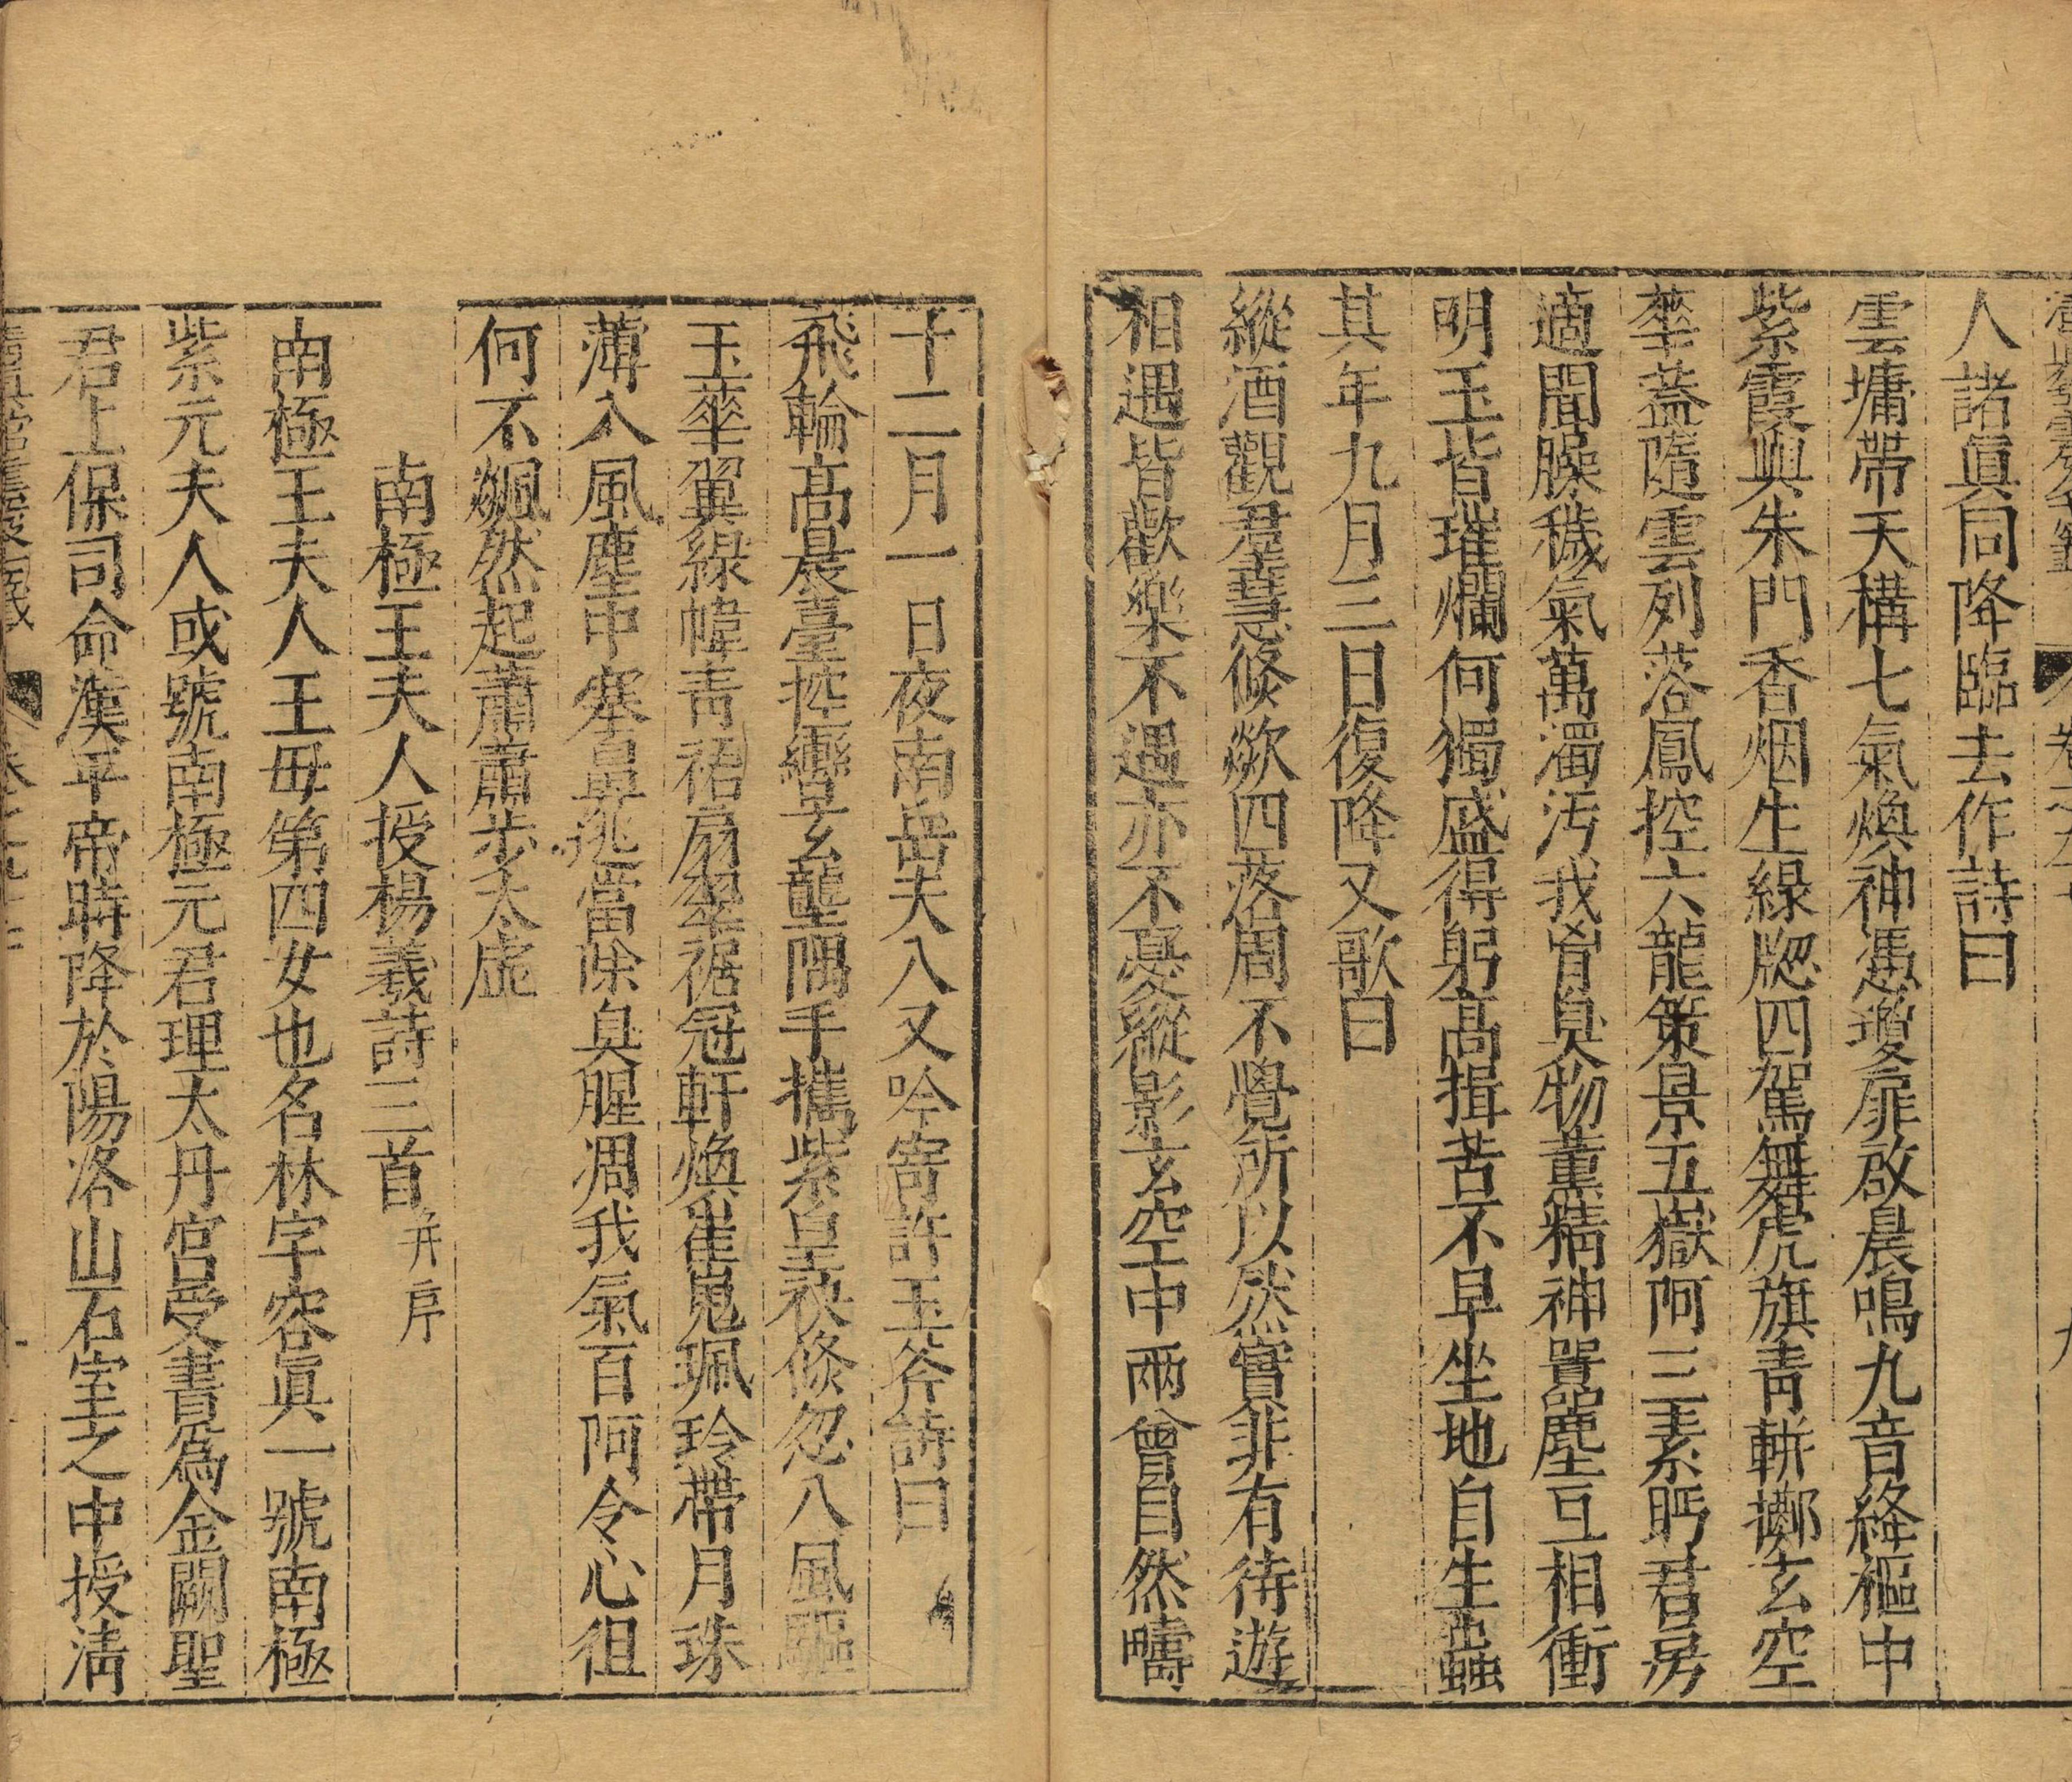 人諸眞同降臨去作詩曰
雲墉帶天構七氣煥神馮瓊扉啟晨鳴九音絳樞中
紫霞興朱門香烟生綠牎四駕舞虎旗青軿擲玄空
華蓋隨雲列落鳳控六龍策景五嶽阿三素眄君房
適聞臊穢氣萬濁汚我胷臭物薰精神囂塵互相衝
明玉皆璀爛何獨盛得躬高揖苦不早坐地自生蟲
其年九月三日復降又歌曰
縱酒觀羣慧倐歘四落周不覺所以然實非有待遊
相遇皆歡樂不遇亦不憂縱影玄空中兩會自然疇
十二月一日夜南岳夫人又吟寄許玉斧詩曰
飛輪高晨臺控轡玄壟隅手攜紫皇袂倐忽八風驅
玉華翼綠幃青裙扇翠裾冠軒煥崔嵬珮玲帶月珠
薄入風塵中塞鼻逃當除臭腥凋我氣百阿令心徂
何不飆然起蕭蕭步太虛
南極王夫人授楊羲詩三首并序
南極王夫人王毋第四女也名林字容眞一號南極
紫元夫人或號南極元君理太丹宮受書爲金闕聖
君上保司命漢平帝時降於陽洛山石室之中授淸